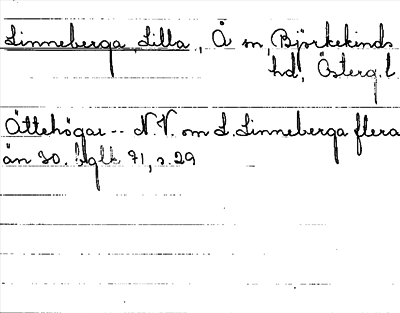 Linneberga, Lilla, Å sn, Björkekinds
hd, Österg.l.
Ättehögar -- N.V. om L. Linneberga flera
än 30. bglk 71, s. 29